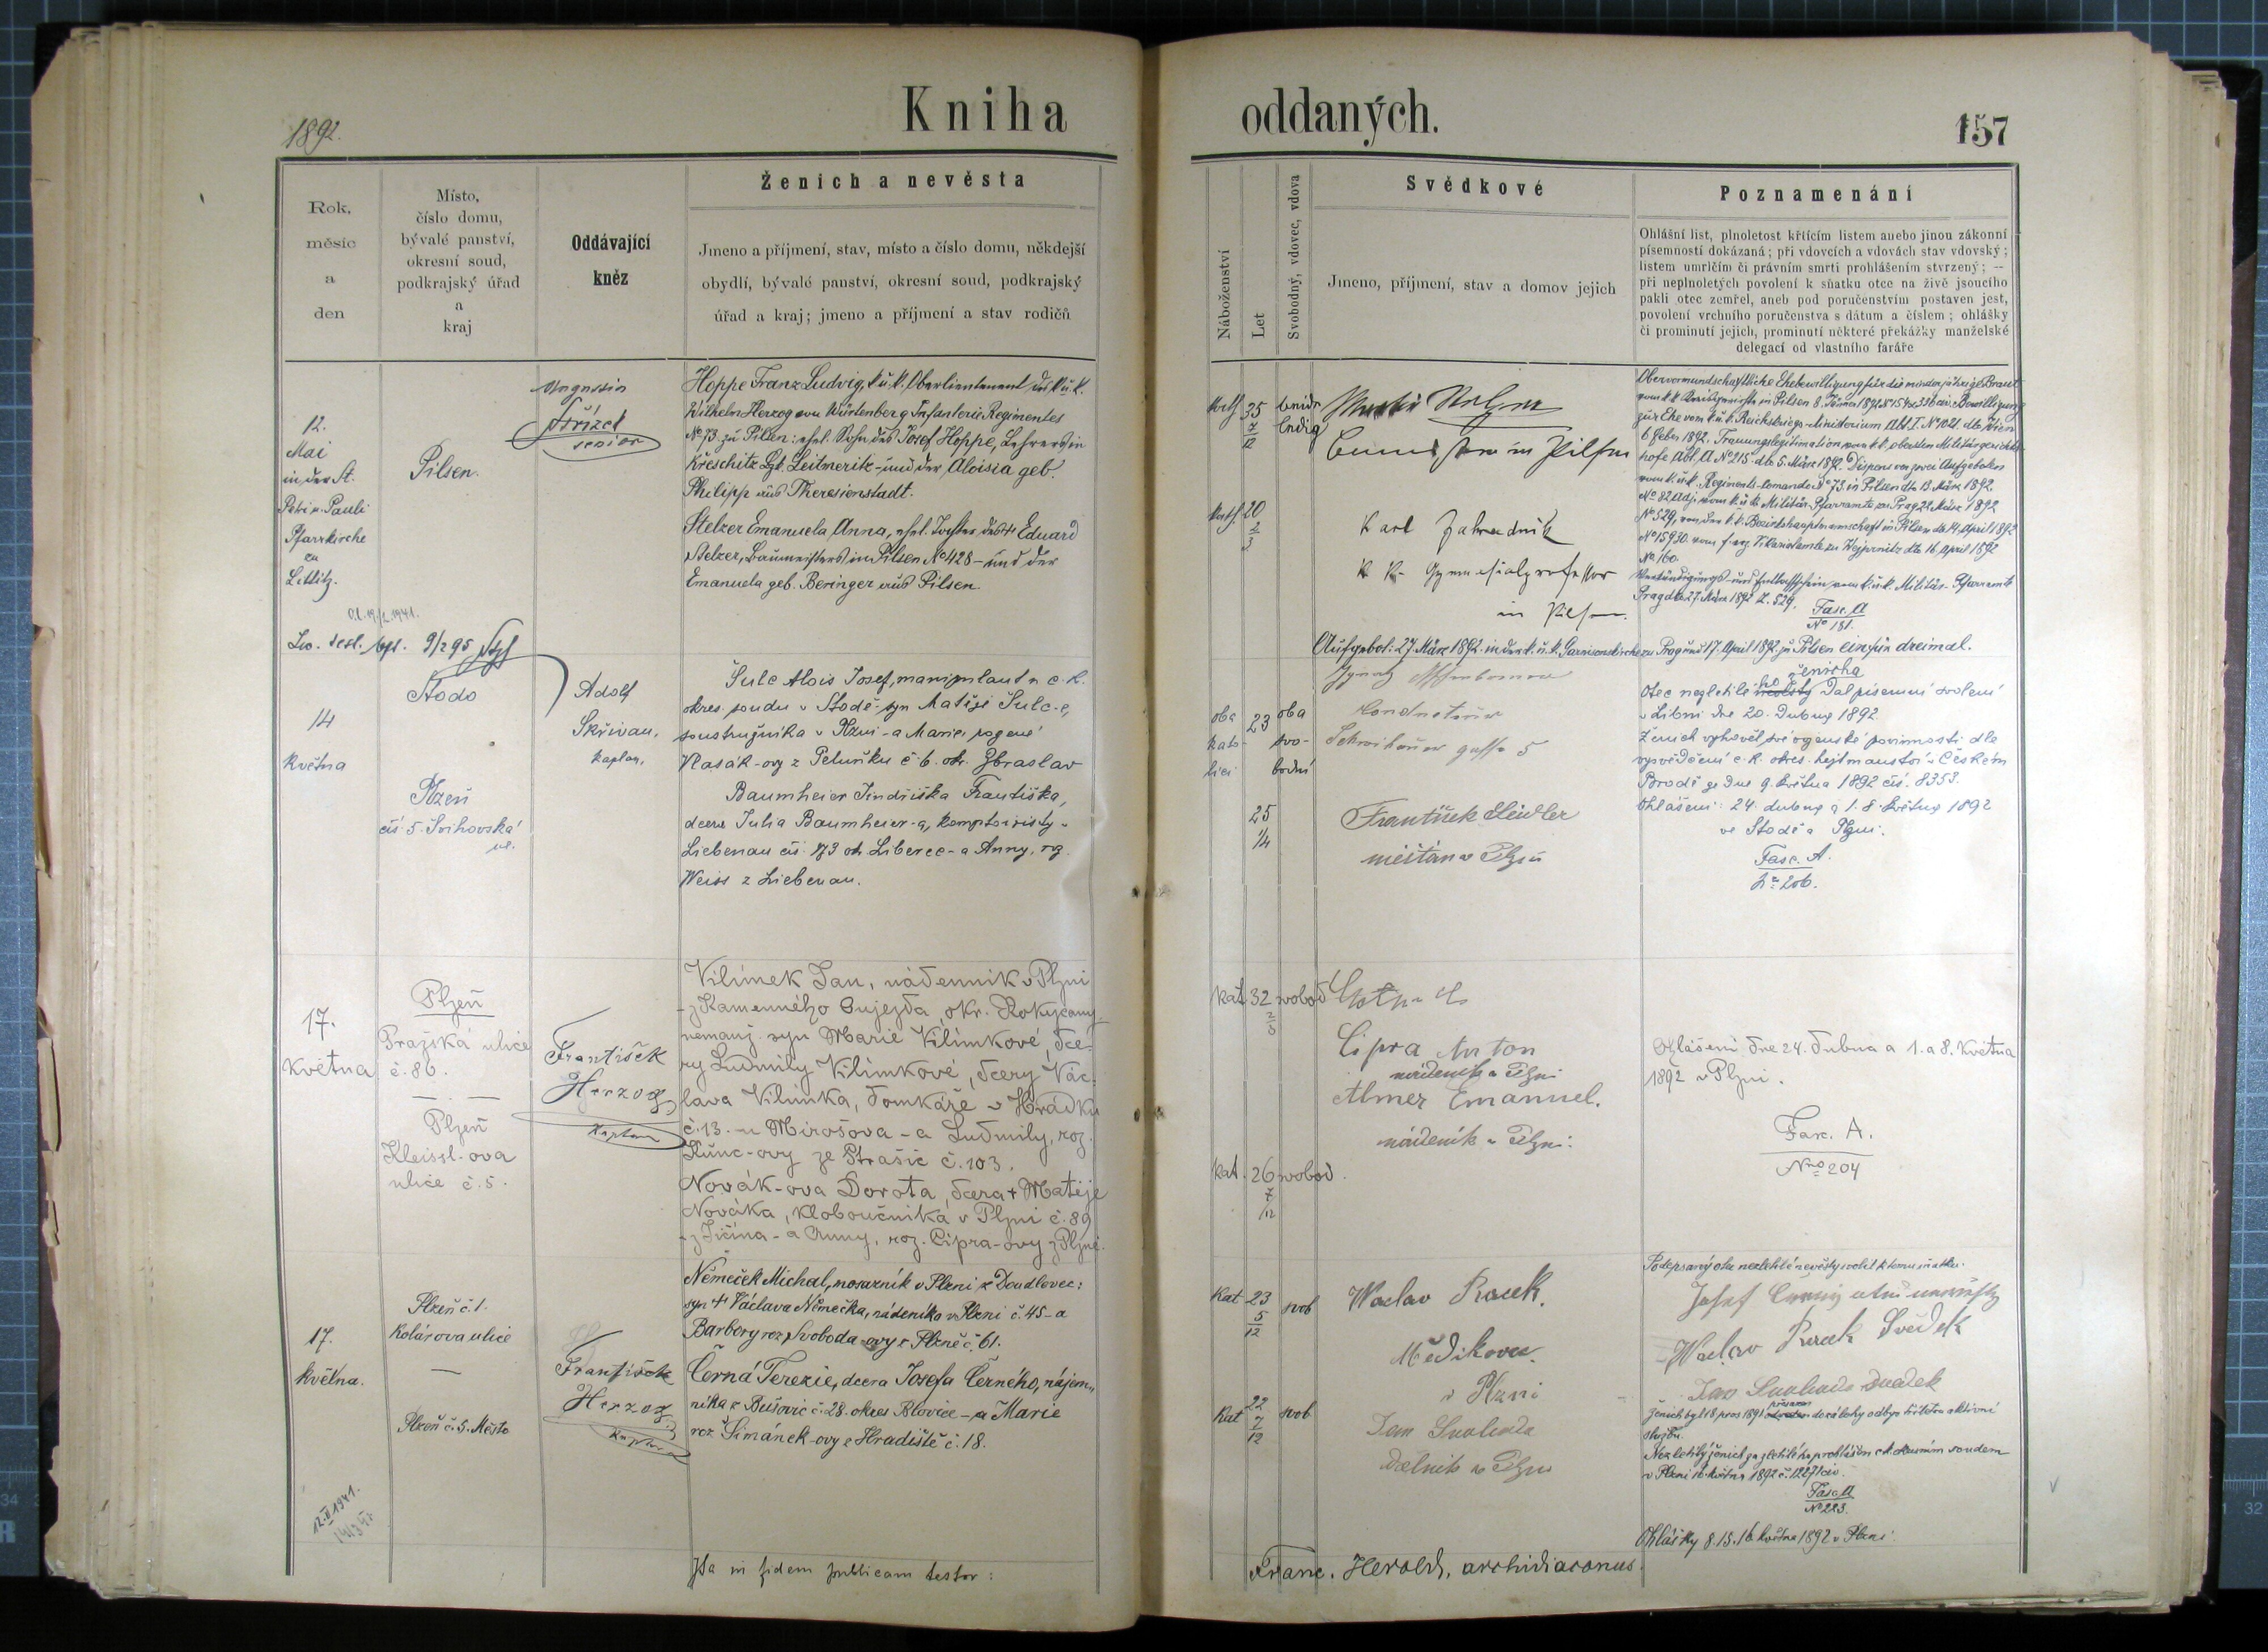 1892.
Kniha
oddaných.
157
Rok,
měsíc
a
den
Místo,
číslo domu,
bývalé panství,
okresní soud,
podkrajský úřad
a
kraj
Oddávající
kněz
Ženich a nevěsta
Jmeno a příjmení, stav, místo a číslo domu, někdejší
obydlí, bývalé panství, okresní soud, podkrajský
úřad a kraj; jmeno a příjmení a stav rodičů
Náboženství
Let
Svobodný, vdovec, vdova
Svědkové
Jmeno, příjmení, stav a domov jejich
Poznamenání
Ohlášní list, plnoletost křticím listem anebo jinou zákonní
písemností dokázaná; při vdovcích a vdovách stav vdovský;
listem umrlčím či právním smrti prohlášením stvrzený; —
při neplnoletých povolení k sňatku otce na živě jsoucího
pakli otec zemřel, aneb pod poručenstvím postaven jest,
povolení vrchního poručenstva s dátum a číslem; ohlášky
či prominutí jejich, prominutí některé překážky manželské
delegací od vlastního faráře
12.
Mai
in der St.
Petri u. Pauli
Pfarrkirche
zu
Littitz.
Pilsen.
senior
Hoppe Franz Ludvig, k. u. k. Oberlieutenant des k. u. k.
Wilhelm Herzog von Würtenberg Infanterie Regimentes
No 73 zu Pilsen: ehel. Sohn des Josef Hoppe, Lehrers in
Křeschitz Bgh. Leitmeritz - und der Aloisia geb.
Philipp aus Theresienstadt.
Stelzer Emanuela Anna, ehel. Tochter des + Eduard
Stelzer, Baumeisters in Pilsen, No 428 - und der
Emanuela geb. Beringer aus Pilsen.
kath. 35
beide
ledig
in Pilsen
kath. 20
Karl Zahradnik
k. k. Gymnasialprofessor
in Pilsen.
Obervormundschaftliche Ehebewilligung für die minderjährige Braut
vom k. k. Bezirksgericht in Pilsen 8. Jänner 1892
zur Ehe vom k. u. k. Reichskriegs-Ministerium Abt. I. No 1021 dto Wien
6. Feber 1892. Trauungslegitimation vom k. k. obersten Militärgerichts-
hofe Abt. A No 215 dto 5. März 1892. Dispens von zwei Aufgeboten
vom k. u. k. Regiments-Comando No 73. in Pilsen dto 13. März 1892.
No 82 Adj. vom k. u. k. Militär-Pfarramte zu Prag 22. März 1892
No 529, von der k. k. Bezirkshauptmannschaft in Pilsen dto 14. April 1892
No 15930. vom f. erz. Vikariatamte zu Wejprnitz dto 16. April 1892
No 160.
Verkündigungs- und Entlassschein vom k. u. k. Militär-Pfarramte
Prag dto 27. März 1892 Z. 529.
Fasc. A
No 181.
Aufgebot: 27. März 1892 in der k. u. k. Garnisonskirche zu Prag und 17. April 1892 zu Pilsen ein für dreimal.
14
Května
Stodo
Plzeň
čís. 5. Švihovská
ul.
Adolf
Skřivan,
kaplan.
Šulc Alois Josef, manipulant u c. k.
okres. soudu v Stodě - syn Matěje Šulc-e,
soustružníka v Plzni - a Marie, rozené
Vlasák-ovy z Peluňku č. 6. okr. Zbraslav
Baumheier Jindřiška Františka,
dcera Julia Baumheier-a, komptoiristy v
Liebenau čís. 173 okr. Liberec - a Anny, roz.
Weiss z Liebenau.
oba
kato-
lici
23
oba
svo-
bodní
25
1/4
Condukteur
Schwihauer gasse 5
František Seidler
měšťan v Plzni
ženicha
Otec nezletilého nevěsty dal písemní svolení
v Libni dne 20. Dubna 1892.
Ženich vyhověl své vojenské povinnosti dle
vysvědčení c. k. okres. hejtmanství v Českém
Brodě ze dne 9. května 1892 čís. 8353.
Ohlášení: 24. dubna a 1. 8. května 1892
ve Stodě a Plzni.
Fasc. A.
No 206.
17.
května
Plzeň
Pražská ulice
č. 86.
Plzeň
Kleissl-ova
ulice č. 5.
František
Herzog
Kaplan
Vilímek Jan, nádenník v Plzni
- z Kamenného Oujezda, okr. Rokycany -
nemanž. syn Marie Vilímkové, dce-
ry Ludmily Vilímkové, dcery Vác-
lava Vilímka, domkáře v Hrádku
č. 13. - u Mirošova - a Ludmily, roz.
Kůnc-ovy ze Strašic č. 103.
Novák-ova Dorota, dcera + Matěje
Nováka, kloboučníka v Plzni č. 89
- z Jičína - a Anny, roz. Cipra-ovy z Plzně.
kat. 32 svobod
Cipra Anton
nádeník v Plzni
Almer Emanuel.
nádeník v Plzni.
kat. 26 svobod.
7
12
Ohlášení dne 24. dubna a 1. a 8. května
1892 v Plzni.
Fasc. A.
Nro 204
17.
května.
Plzeň č. 1.
Kolárova ulice
—
Plzeň č. 5. Město
František
Herzog
Kaplan
Němeček Michal, nosazník v Plzni z Doudlovec:
syn + Václava Němečka, nádeníka v Plzni č. 45 - a
Barbory roz. Svoboda-ovy z Plzně č. 61.
Černá Terezie, dcera Josefa Černého, nájem-
níka z Bušovic č. 28. okres Blovice - a Marie
roz. Šimánek-ovy z Hradiště č. 18.
Kat 23
5
12
svob
Kat 22
7
12
svob
Waclav Racek.
v Plzni
Jan Svoboda
dělník v Plzni
Podepsaný otec nezletilé nevěsty svolil k tomu sňatku.
Josef Černý otec nevěsty
Waclav Racek Svědek
Jan Svoboda svědek
Nezletilý ženich za zletilého prohlášen c. k. okresním soudem
v Plzni 16. května 1892 č. 12271 civ.
Fasc. A
No 223.
Ohlášky 8. 15. 16. května 1892 v Plzni.
12. II 1941.
Ita in fidem publicam testor:
Franc. Herold, archidiaconus.